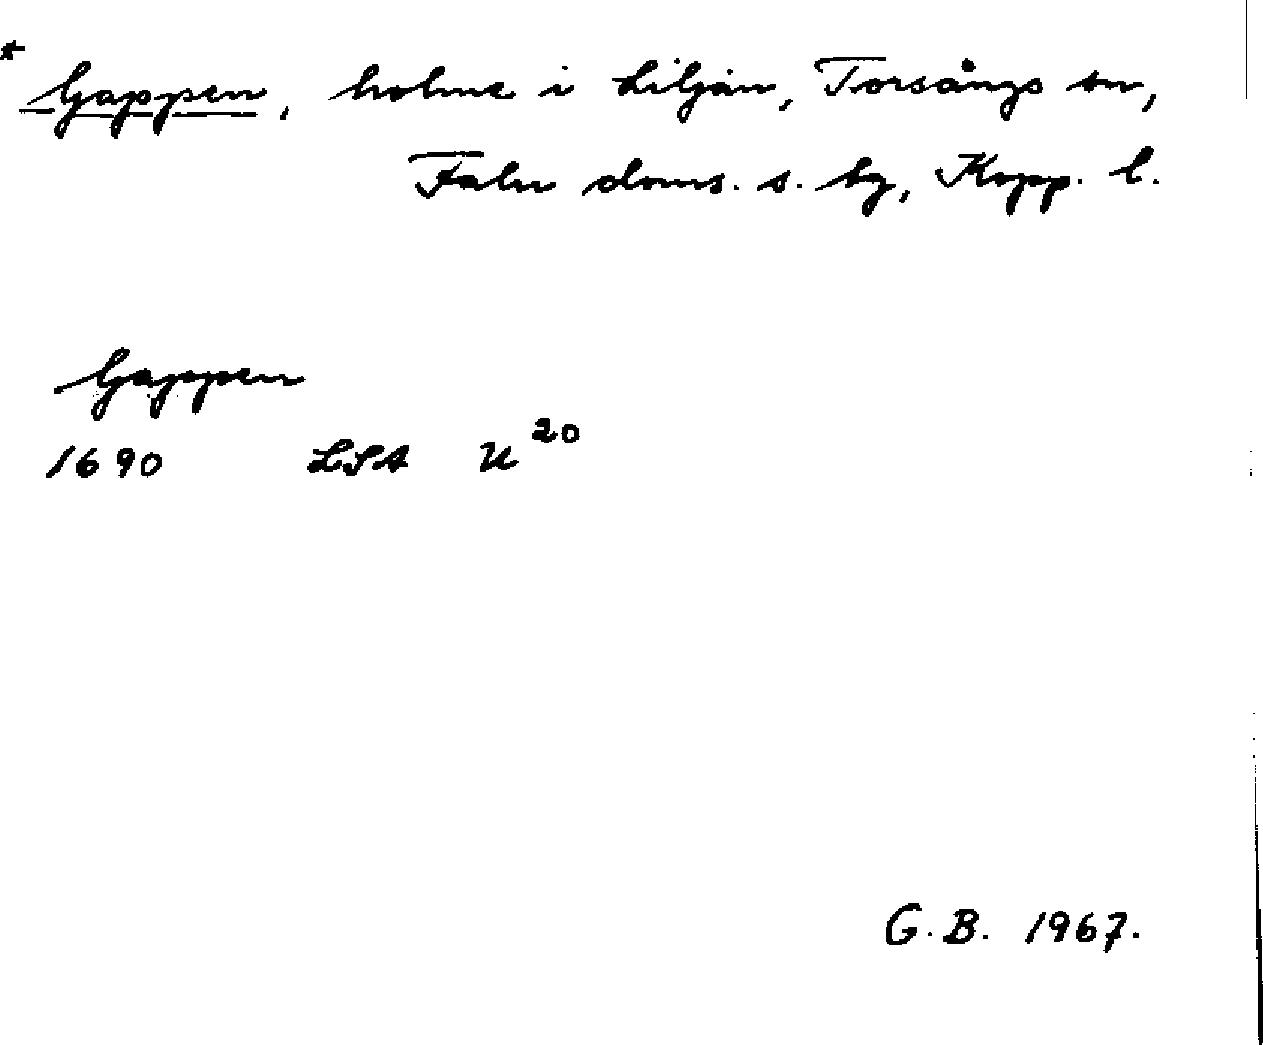 * Gappen, holme i Liljan, Torsångs sn,
Falu doms. s. bg, Kopp. l.
Gappen
1690 LSA U 20
G. B. 1967.